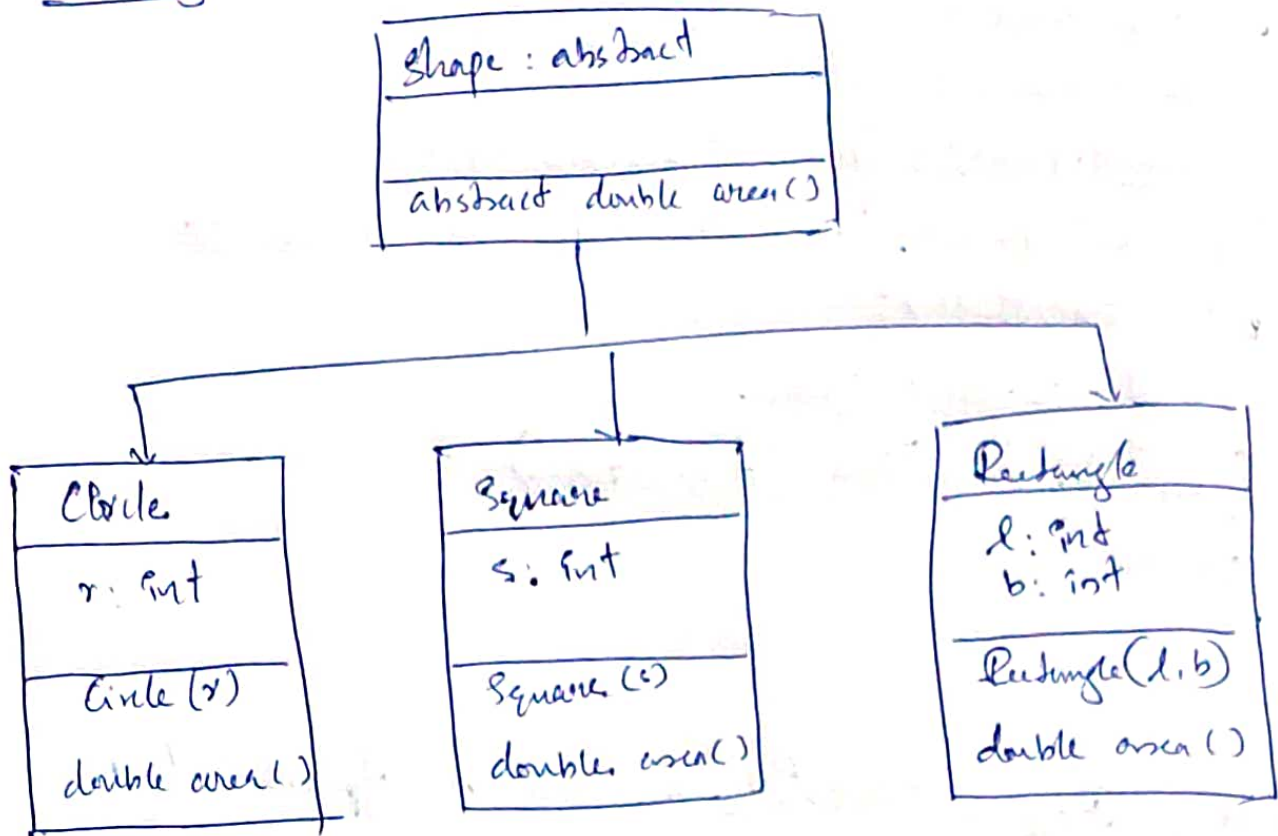 Shape : abstract
abstract double area()
Circle
r: int
Circle (r)
double area()
Square
s: int
Square (s)
double area()
Rectangle
l: int
b: int
Rectangle(l,b)
double area()